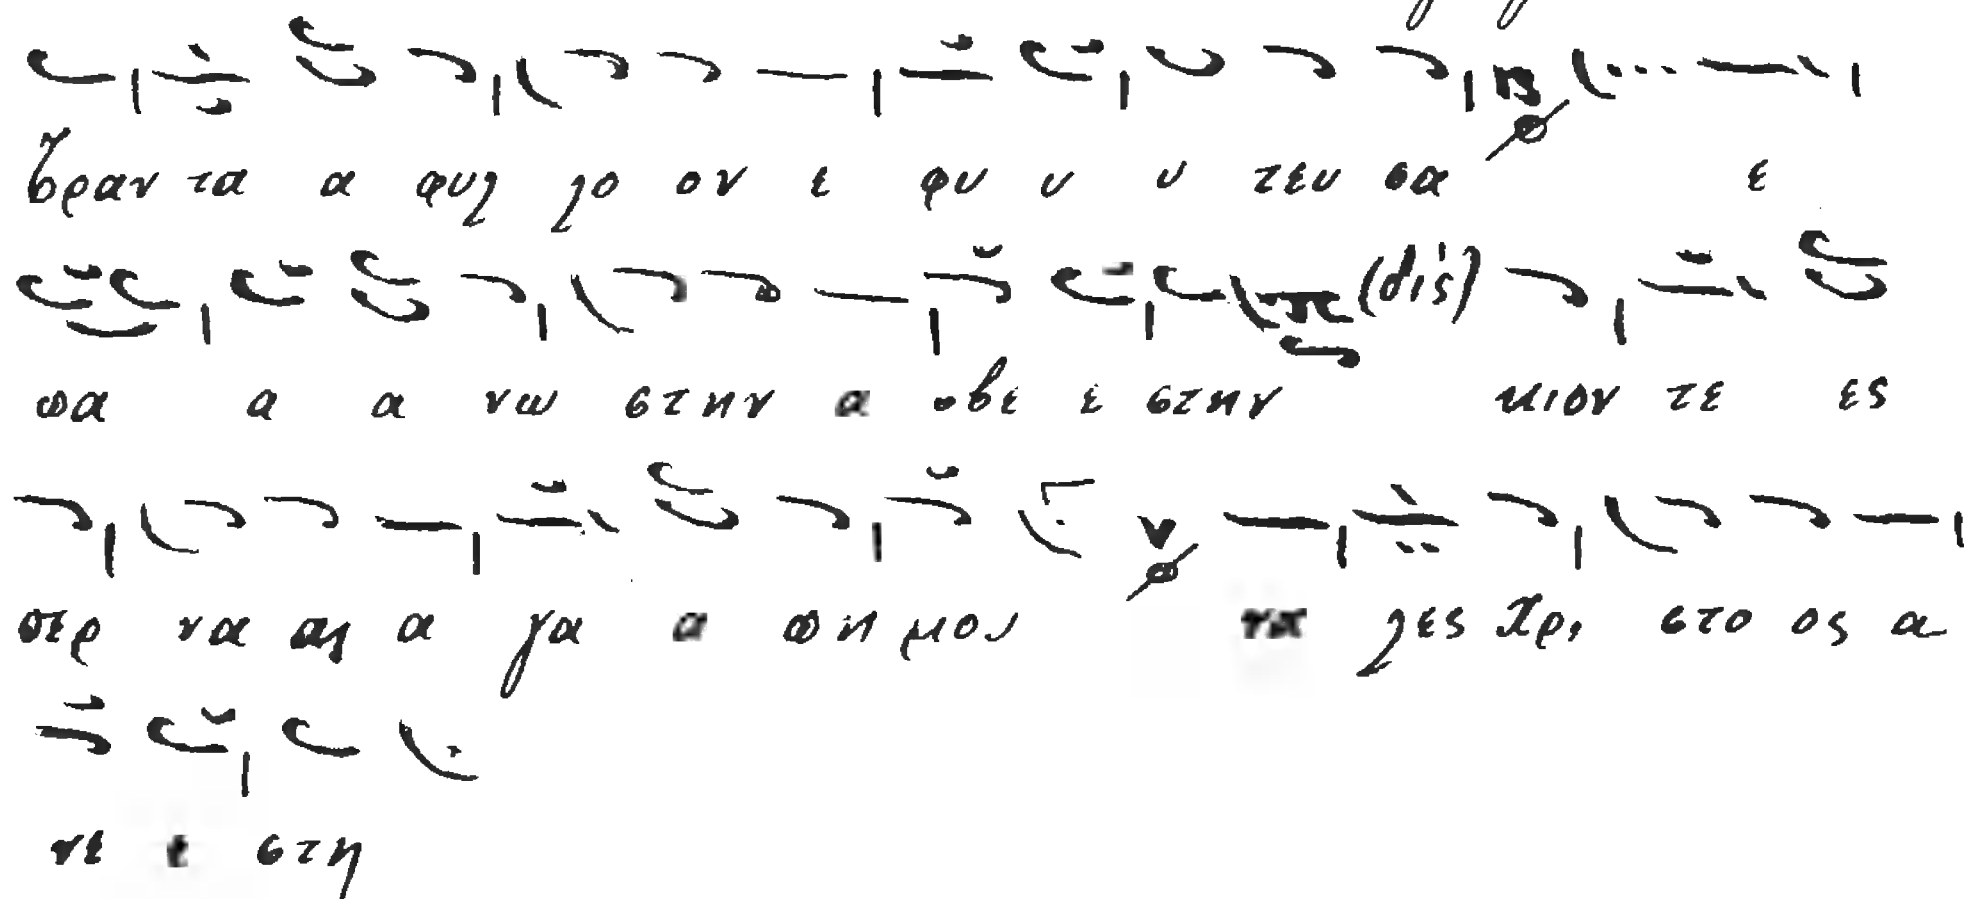 βραν τα α φυλ λο ον ε φυ υ υ τευ σα ε
πα α α νω στην α σβε ε στην (δίς) κιον τε ες
περ να αη α γα α πη μου να λες Χρι στο ος α
νε ε στη